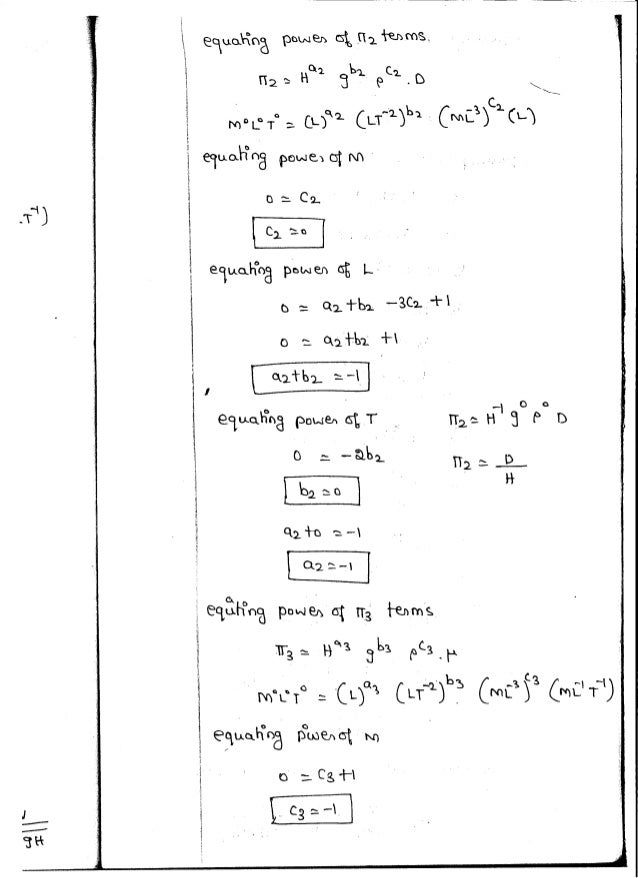 equating power of π2 terms.
π2 = H^a2 g^b2 ρ^c2 . D
M°L°T° = (L)^a2 (LT^-2)^b2 (ML^-3)^c2 (L)
equating power of M
0 = C2
C2 = 0
.T^-1)
equating power of L
0 = a2 + b2 - 3C2 + 1
0 = a2 + b2 + 1
a2 + b2 = -1
equating power of T
0 = -2b2
b2 = 0
a2 + 0 = -1
a2 = -1
π2 = H^-1 g° ρ° D
π2 = D/H
equating power of π3 terms
π3 = H^a3 g^b3 ρ^c3 . μ
M°L°T° = (L)^a3 (LT^-2)^b3 (ML^-3)^c3 (ML^-1 T^-1)
equating power of M
0 = C3 + 1
C3 = -1
gH